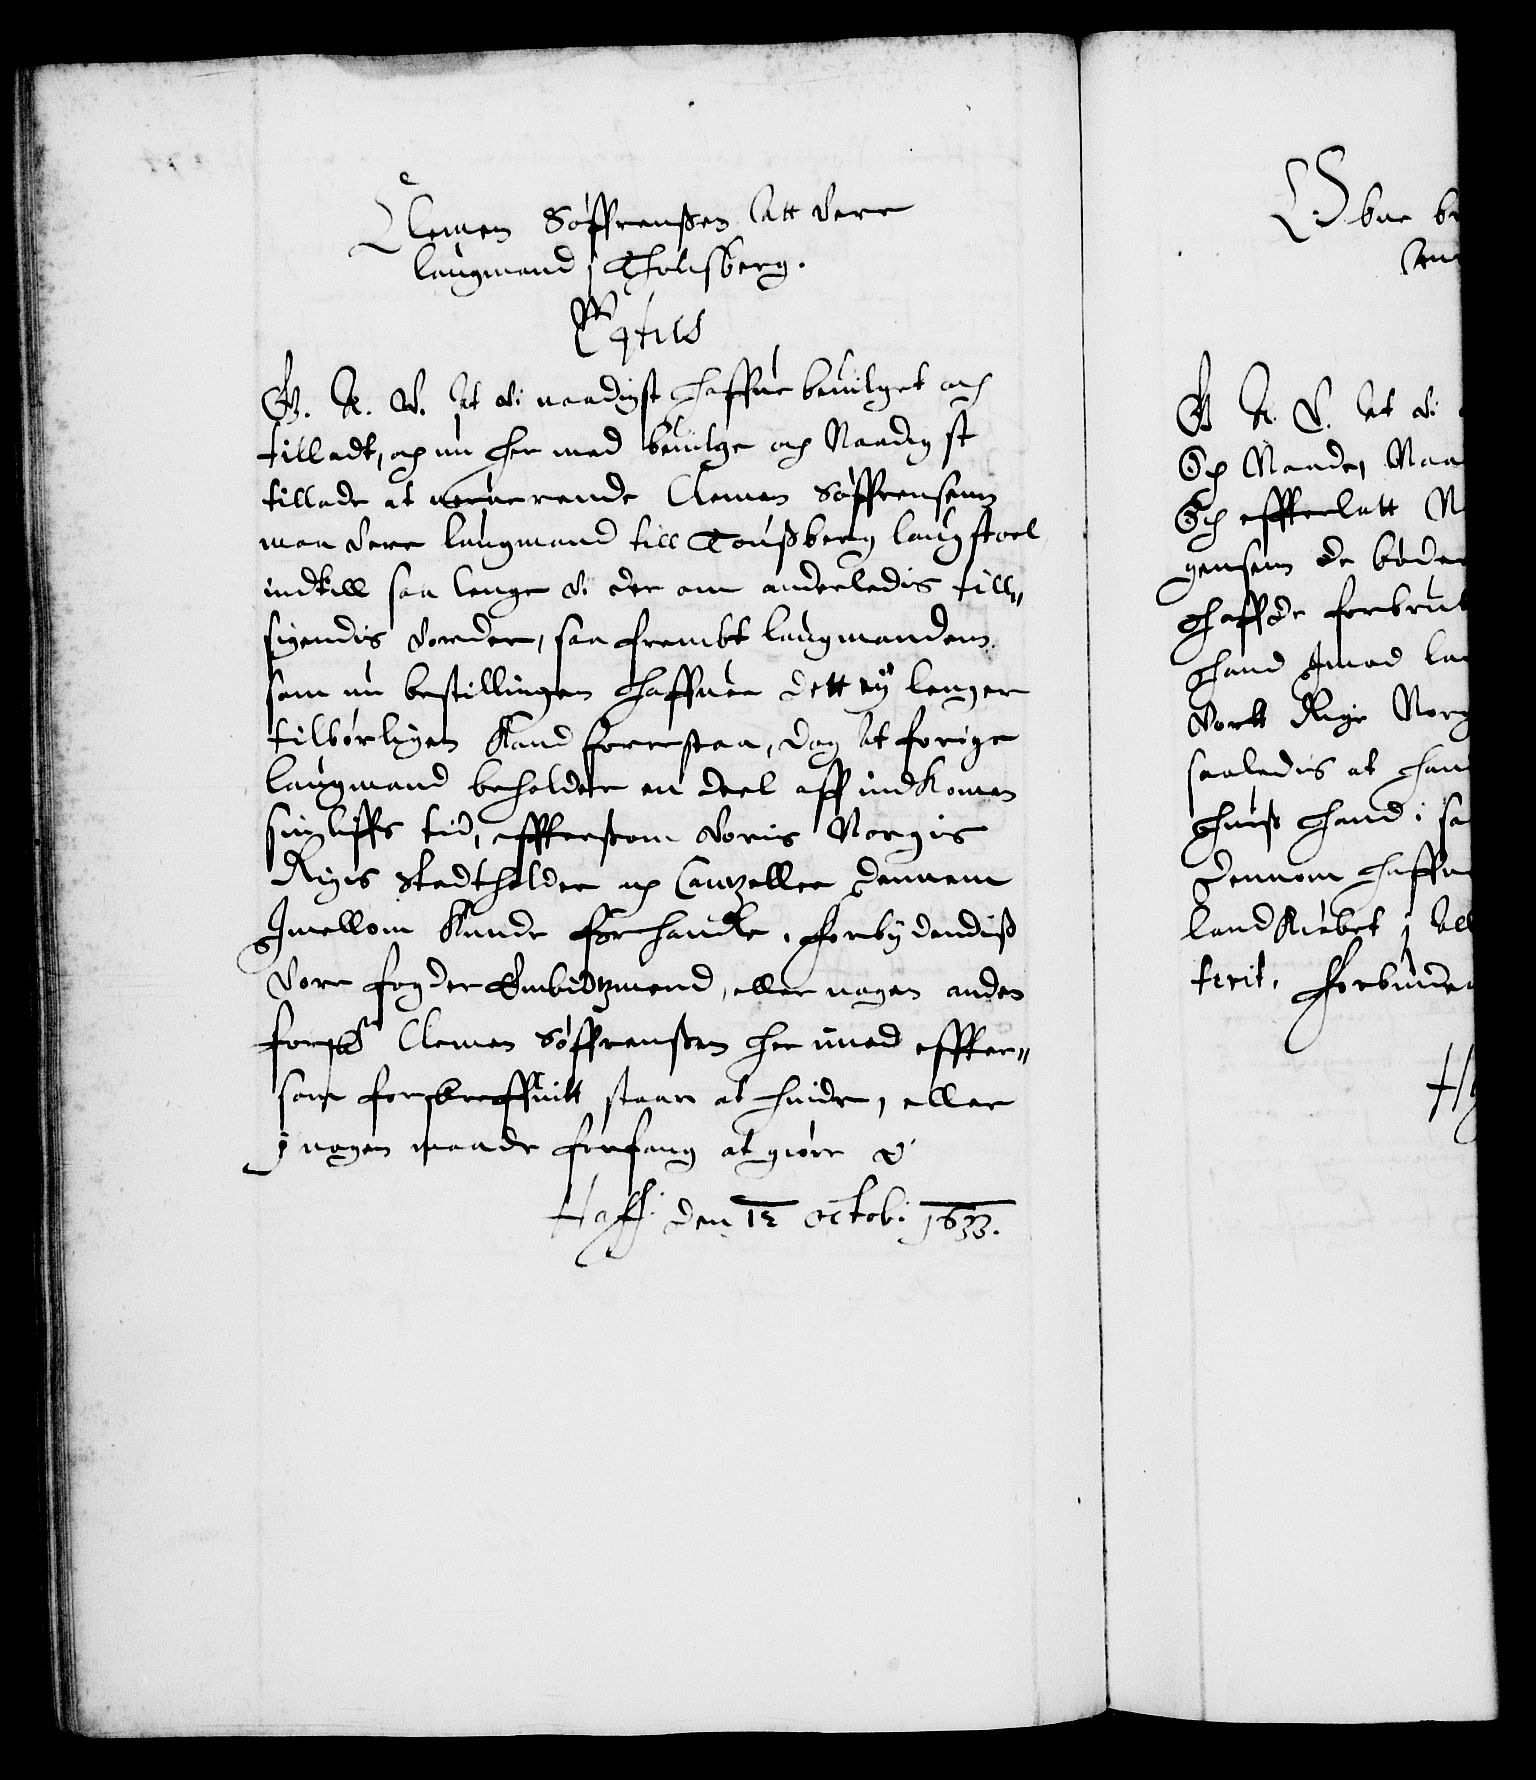 Clemen Søffrenssen Att vere
laugmand j Thønsberg.
C 4tus
G. A. V. At vi naadigst haffue beuilget och
tilladt, och nu her med beuilge och Naadigst
tillade at nerverende Clemen Søffrensenn
maa vere laugmand till Tønssberg laugstoel,
indtill saa lenge vi der om anderledis till„
sigendis vorder, saa frembt laugmanden
som nu bestillingen haffuer dett ey lenger
tilbørligen Kand forrestaa, dog At forige
laugmand beholder en deel aff indKomen
sin liffs tid, effttersom voris Norgis
Rigis Stadtholder och Cantzeller dennem
Imellom Kunde forhandle, forbydendiss
vore fogder Embidtzmend, eller nogen anden
forschne Clemen Søffrenssen her imod effter„
som forschreffuitt staar at hindre, eller
j nogen maade forfang at giøre
Haffn: den 12 Octob: 1633.
bne be
G A. V. At vi
Och Naade, Naa
Och effterlatt N
gensenn de bøder
haffde forbrut
hand Imod la
Vortt Rige Norg
saaledis at han
huiss hand i sa
Dennom haffu
landKiøbet j All
terit, Forbinde
H